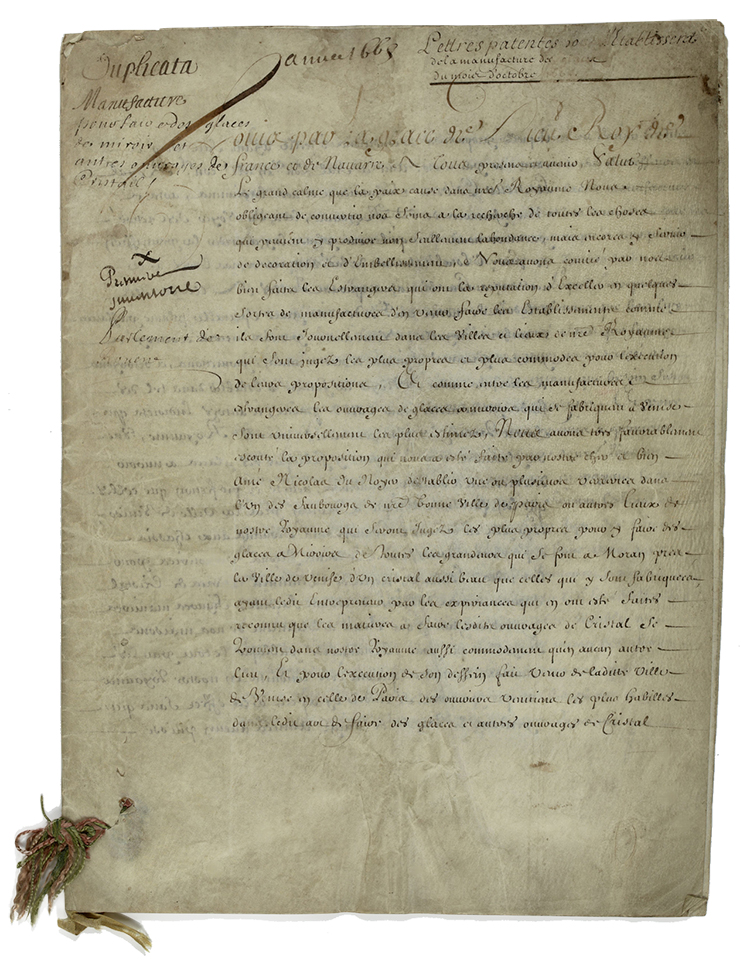 Duplicata
Janvier 1665
Lettres patentes Establissement
de la manufacture des
du mois d'octobre
Manufacture
pour faire des glaces
de miroir et
autres ouvrages de
Cristail
Premiere
inventoire
Parlement de
Louis par la grace de Dieu Roy de
france et de Navarre, A tous presens et avenir, Salut
Le grand calme que la paix cause dans nre Royaume Nous
obligeant de convertir nos soins a la recherche de toutes les choses
qui peuvent y produire non seullement labondance, mais encores y servir
de decoration et d'Embellissement, Nous avons convié par nos
bien faits les Estrangers qui ont la reputation d'Exceller en quelques
sortes de manufactures d'en venir faire les Establissements comme
ils font Journellement dans les villes et lieux de nre Royaume
qui sont jugez les plus propres et plus commodes pour l'execution
de leurs propositions, Et comme entre les manufactures
estrangeres les ouvrages de glaces a miroirs qui se fabriquent à Venise
sont universellement les plus estimez, Nous avons tres favorablement
escouté la proposition qui nous a esté faite par nostre cher et bien
Amé Nicolas du Noyer d'establir une ou plusieurs verreries dans
l'un des faubourgs de nre bonne ville de paris ou autres lieux de
nostre Royaume qui seront Jugez les plus propres pour y faire des
glaces a Miroirs de toutes les grandeurs qui se font a Moran pres
la ville de venise d'un cristal aussi beau que celles qui y sont fabriquees
ayant ledit Entrepreneur par les experiances qui en ont esté faites
reconnu que les matieres a faire lesdits ouvrages de Cristal se
trouvent dans nostre Royaume aussi commodement qu'en aucun autre
lieu, Et pour l'execution de son dessein fait venir de ladite ville
de Venise en celle de Paris des ouvriers venitiens les plus habilles
dans ledit art de faire des glaces et autres ouvrages de Cristal